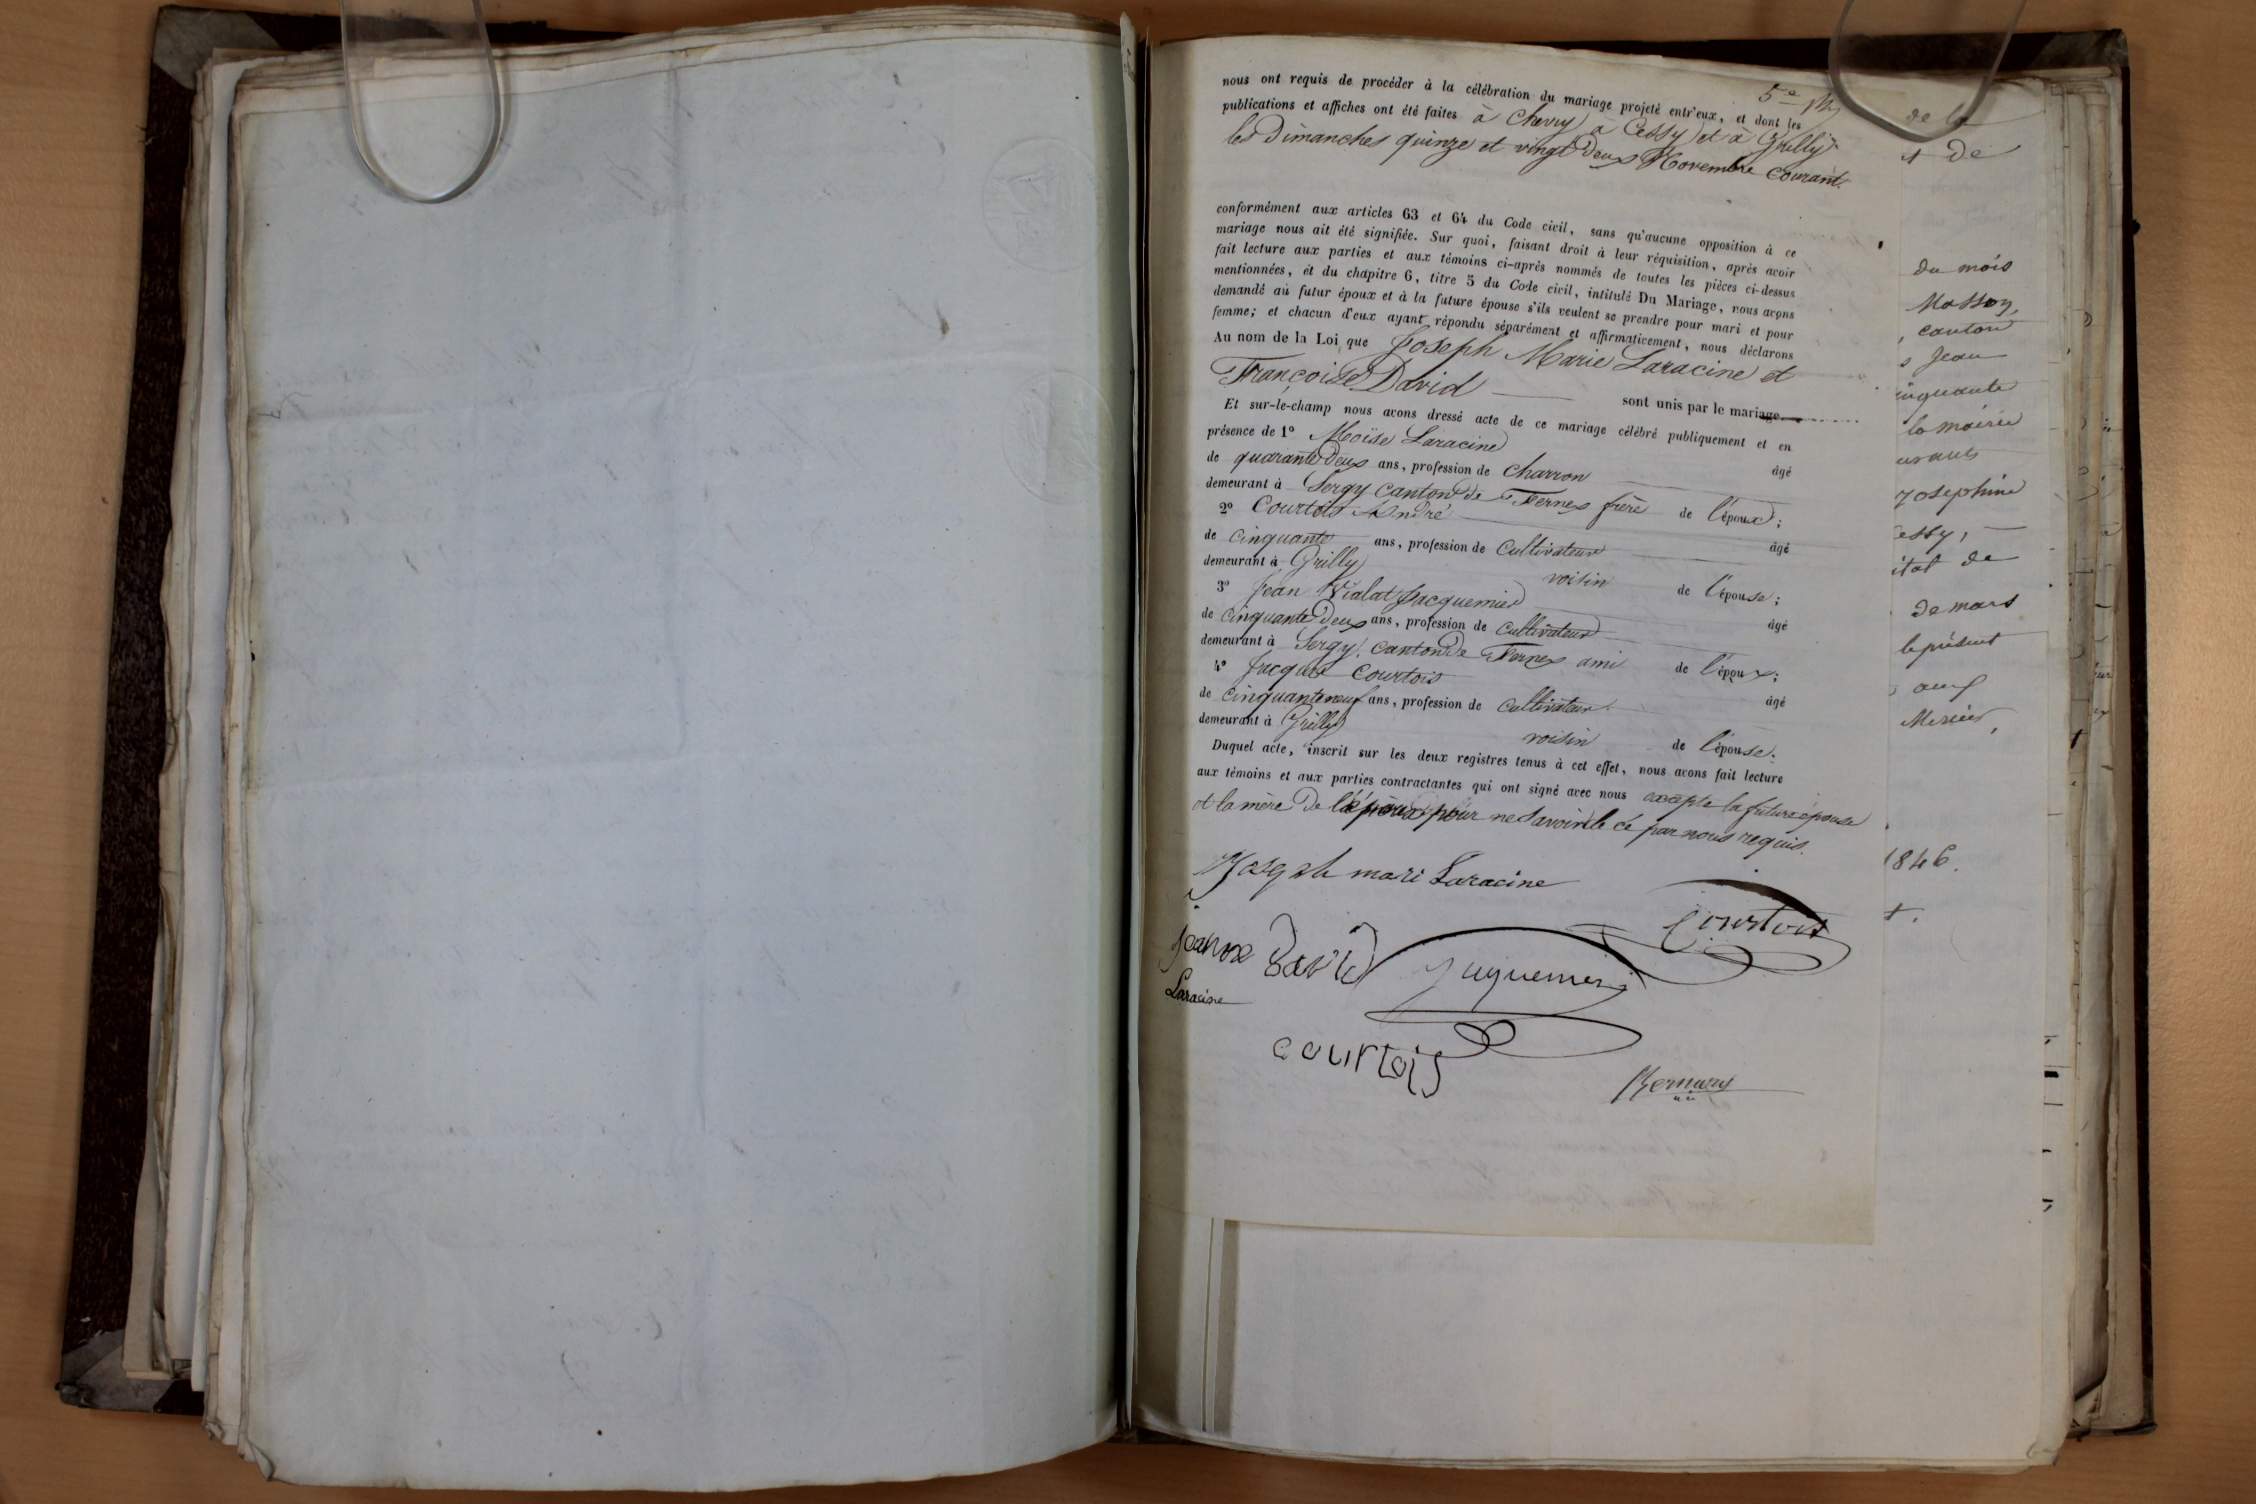 5e M
nous ont requis de procéder à la célébration du mariage projeté entr'eux, et dont les
publications et affiches ont été faites à Chevry, à Cessy et à Grilly
les Dimanches quinze et vingt Deux Novembre courant.
conformément aux articles 63 et 64 du Code civil, sans qu'aucune opposition à ce
mariage nous ait été signifiée. Sur quoi, faisant droit à leur réquisition, après avoir
fait lecture aux parties et aux témoins ci-après nommés de toutes les pièces ci-dessus
mentionnées, et du chapitre 6, titre 5 du Code civil, intitulé Du Mariage, nous avons
demandé au futur époux et à la future épouse s'ils veulent se prendre pour mari et pour
femme; et chacun d'eux ayant répondu séparément et affirmativement, nous déclarons
Au nom de la Loi que Joseph Marie Laracine et
Françoise David sont unis par le mariage
Et sur-le-champ nous avons dressé acte de ce mariage célébré publiquement et en
présence de 1º Moïse Laracine âgé
de quarante Deux ans, profession de charron
demeurant à Sergy canton de Fernex frère de l'époux;
2º Courtois André âgé
de cinquante ans, profession de cultivateur
demeurant à Grilly voisin de l'épouse;
3º Jean Vialat Jacquemier âgé
de cinquante Deux ans, profession de cultivateur
demeurant à Sergy, canton de Fernex ami de l'époux;
4º Jacques Courtois âgé
de cinquante neuf ans, profession de cultivateur
demeurant à Grilly voisin de l'épouse.
Duquel acte, inscrit sur les deux registres tenus à cet effet, nous avons fait lecture
aux témoins et aux parties contractantes qui ont signé avec nous excepté la future épouse
et la mère De l'époux pour ne savoir le ce par nous requis.
Joseph mari Laracine
Courtois
jeanne David
Laracine
courtois
de la
t de
du mois
Masson,
, canton
s Jean
inquante
la mairie
Josephine
Cessy,
itat de
de mars
le présent
Mercier,
1846.
t.